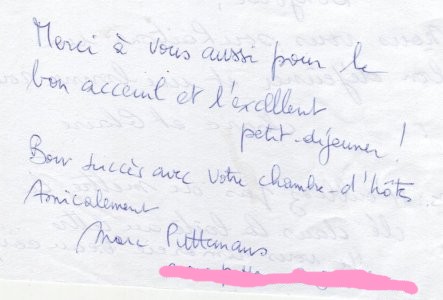 Merci à vous aussi pour le
bon acceuil et l'exellent
petit-déjeuner !
Bon succès avec votre chambre-d'hôtes
Amicalement
Marc Puttemans